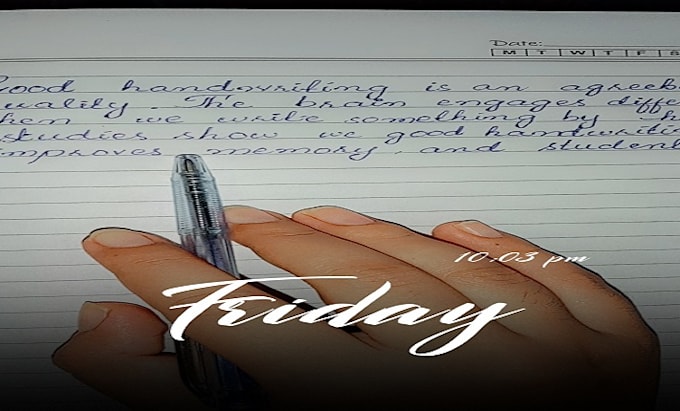 Date:
M T W T F S
Good handwriting is an agreeb
quality. The brain engages diffe
when we write something by h
studies show we good handwritin
improves memory, and student
10:03 pm
Friday